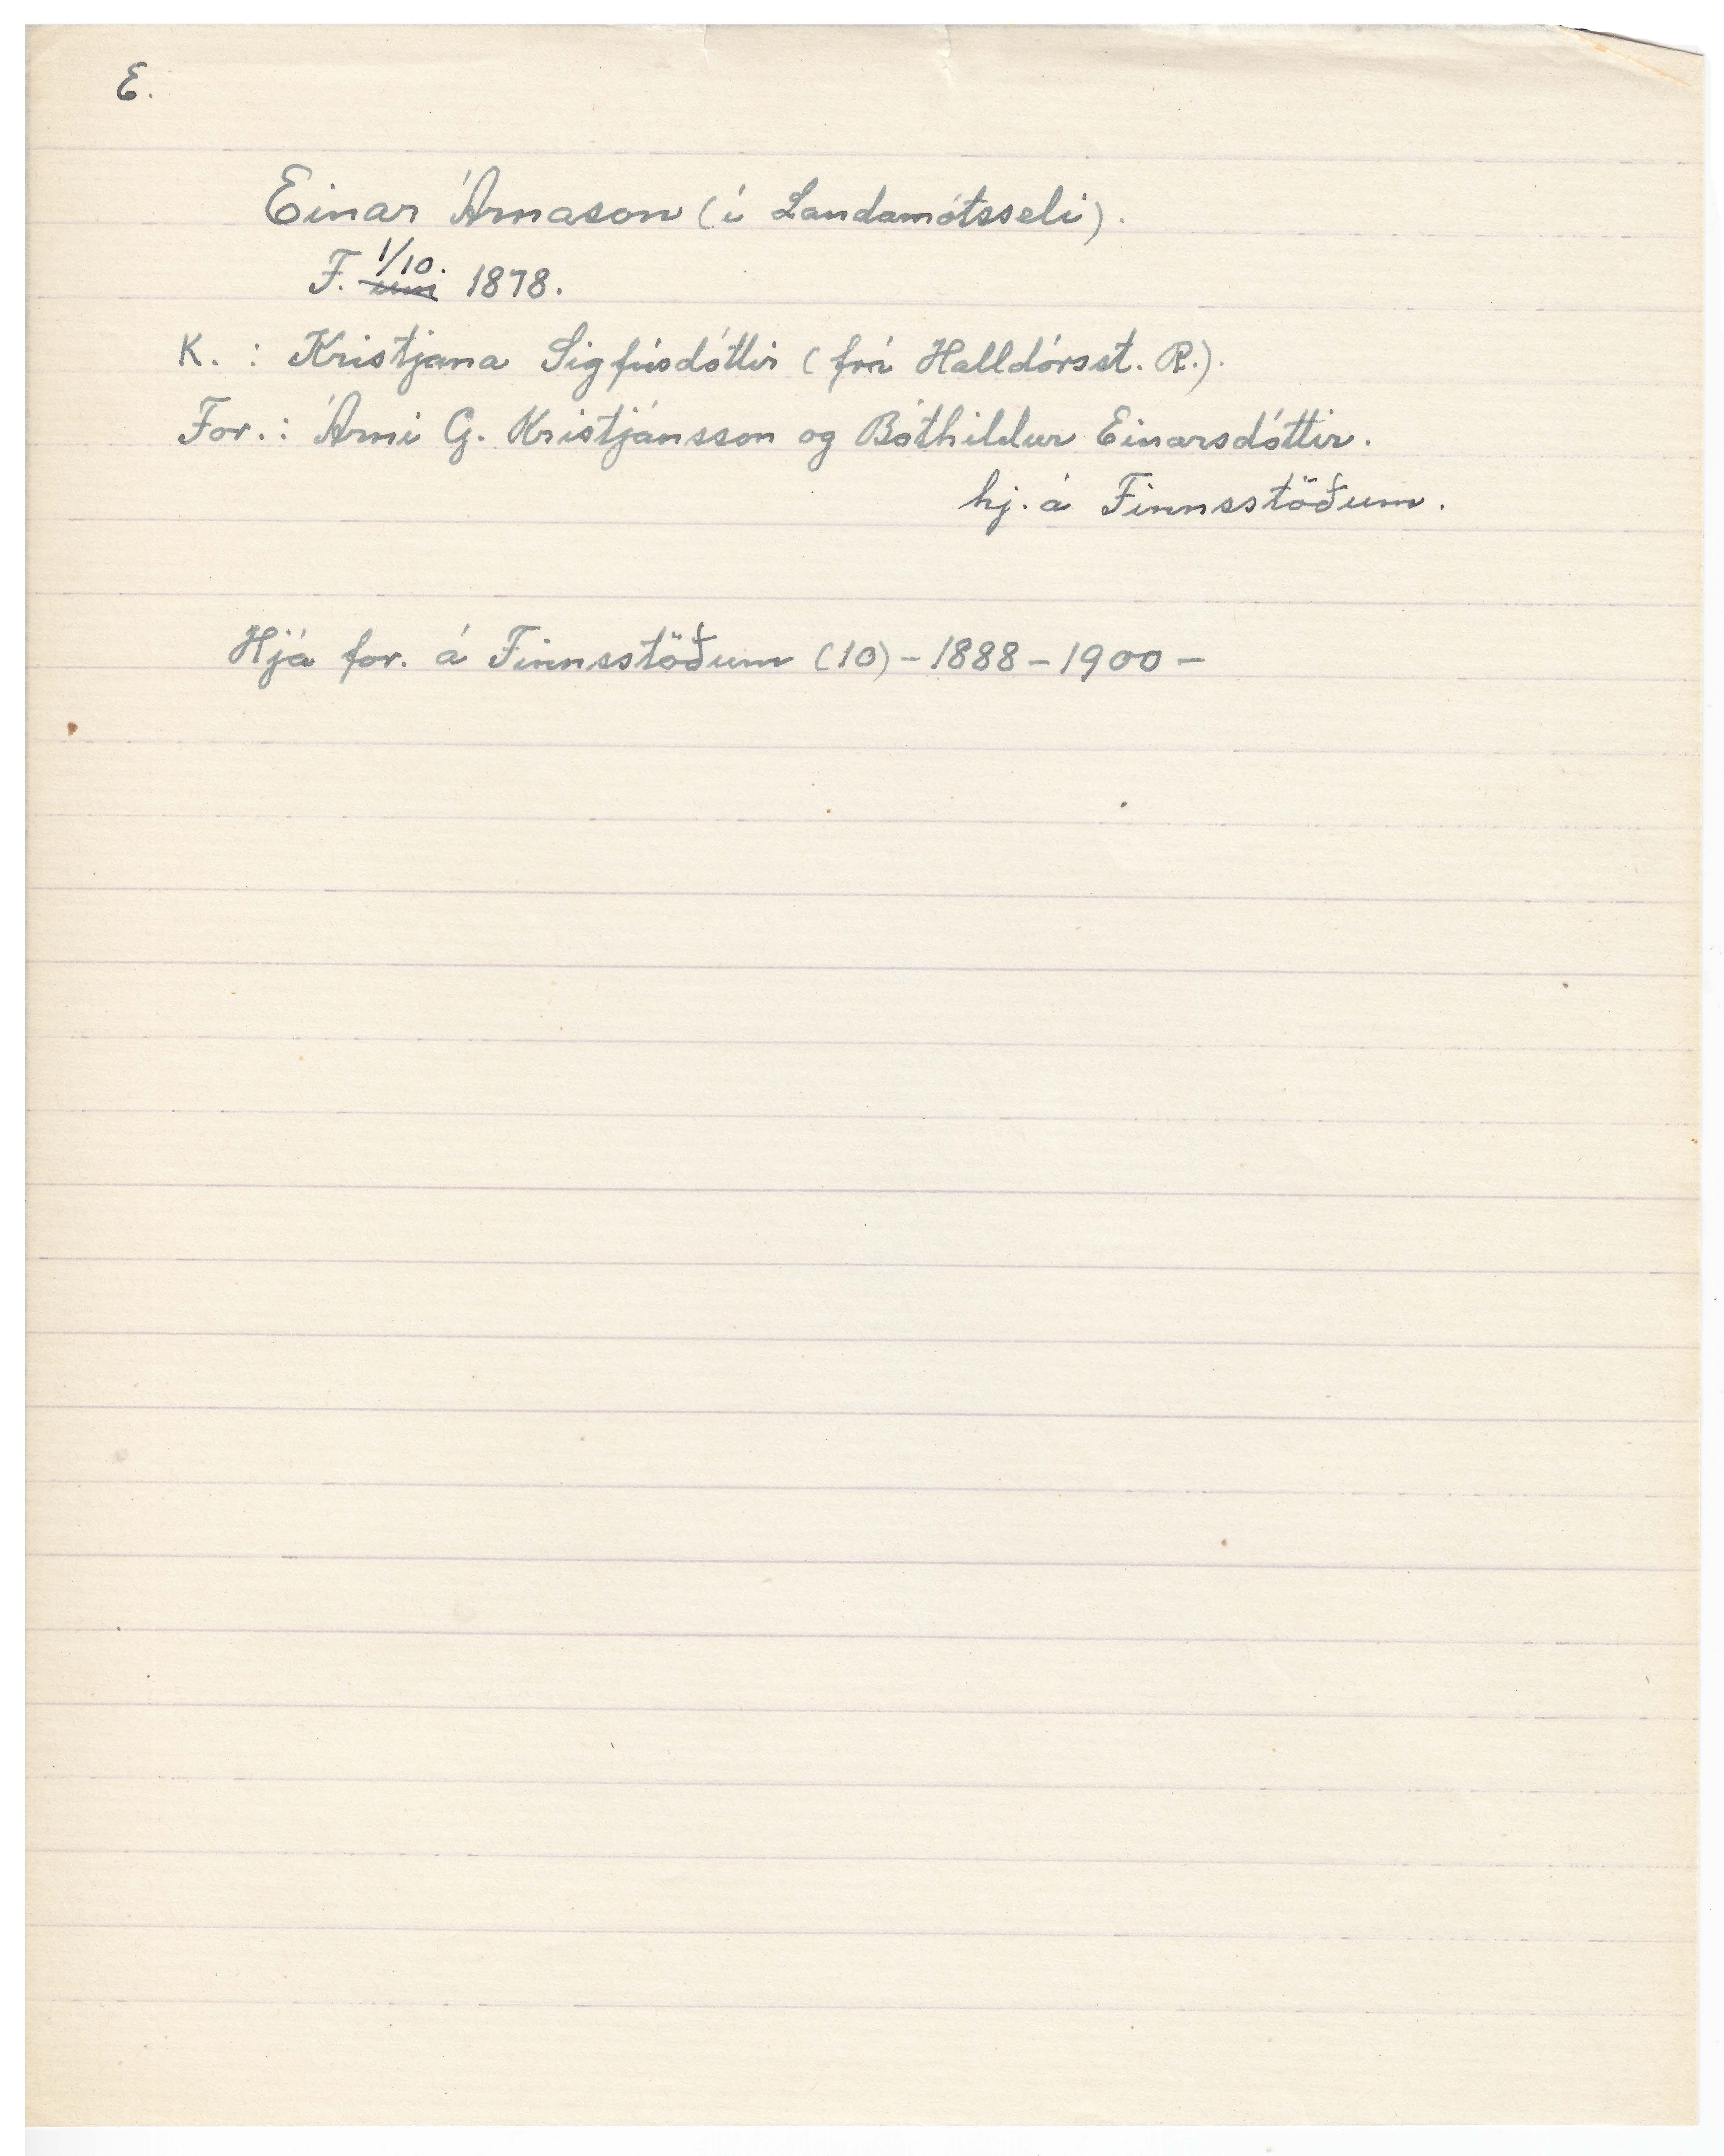 E.
Einar Árnason (í Landamótsseli).
F. 1/10. um 1878.
K. : Kristjana Sigfúsdóttir (frá Halldórsst. R.).
For. : Árni G. Kristjánsson og Bóthildur Einarsdóttir.
hj. á Finnsstöðum.
Hjá for. á Finnsstöðum (10) - 1888 - 1900 -